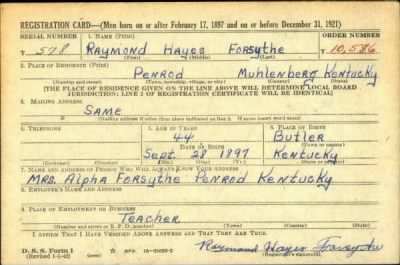 REGISTRATION CARD—(Men born on or after February 17, 1897 and on or before December 31, 1921)
SERIAL NUMBER 1. NAME (Print) ORDER NUMBER
T 578 Raymond Hayes Forsythe T 10,586
(First) (Middle) (Last)
2. PLACE OF RESIDENCE (Print)
Penrod Muhlenberg Kentucky
(Number and street) (Town, township, village, or city) (County) (State)
[THE PLACE OF RESIDENCE GIVEN ON THE LINE ABOVE WILL DETERMINE LOCAL BOARD
JURISDICTION; LINE 2 OF REGISTRATION CERTIFICATE WILL BE IDENTICAL]
3. MAILING ADDRESS
SAME
[Mailing address if other than place indicated on line 2. If same insert word same]
4. TELEPHONE 5. AGE IN YEARS 6. PLACE OF BIRTH
44 Butler
DATE OF BIRTH (Town or county)
Sept. 28 1897 Kentucky
(Exchange) (Number) (Mo.) (Day) (Yr.) (State or country)
7. NAME AND ADDRESS OF PERSON WHO WILL ALWAYS KNOW YOUR ADDRESS
Mrs. Alpha Forsythe Penrod Kentucky
8. EMPLOYER'S NAME AND ADDRESS
9. PLACE OF EMPLOYMENT OR BUSINESS
Teacher
(Number and street or R. F. D. number) (Town) (County) (State)
I AFFIRM THAT I HAVE VERIFIED ABOVE ANSWERS AND THAT THEY ARE TRUE.
D. S. S. Form 1
(Revised 1-1-42) (over) Raymond Hayes Forsythe
(Registrant's signature)